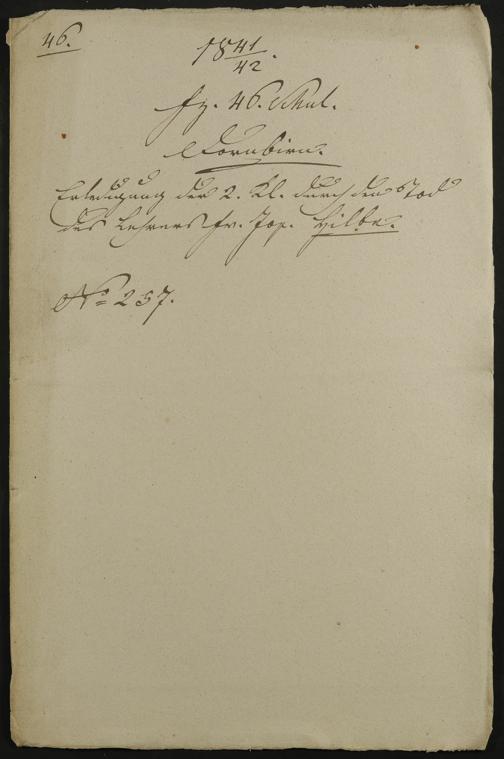 46.
18 41/42.
Fz. 46. Schul.
Dornbirn.
Erledigung der 2. Kl. durch den Tod
des Lehrers Fr. Jos. Hilbe.
No 257.